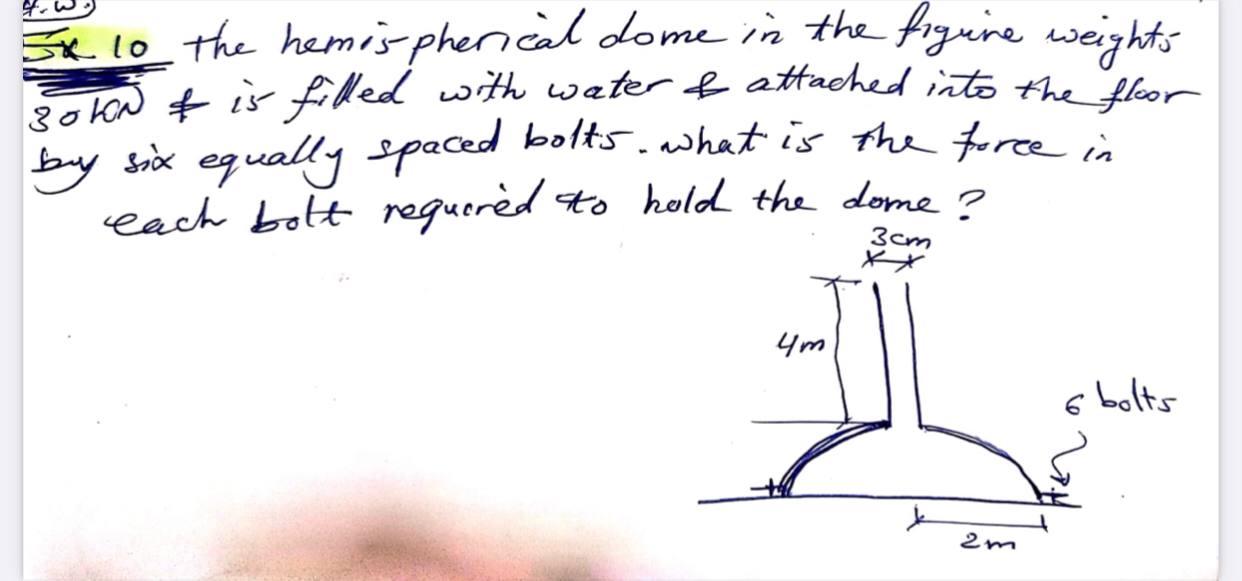 H.W.)
Ex 10 the hemispherical dome in the figure weights
30 kN & is filled with water & attached into the floor
by six equally spaced bolts. what is the force in
each bolt requered to hold the dome ?
3cm
4m
6 bolts
2m